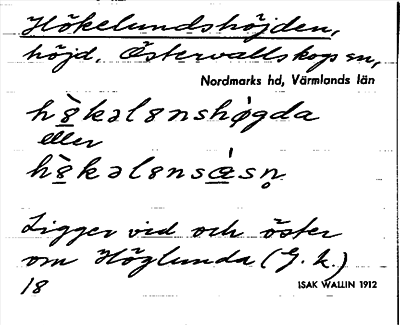 Hökelundshöjden,
höjd. Östervallskog sn,
Nordmarks hd, Värmlands län
hö̀kələnshǿgda
eller
hö̀kələnsɑ́sn̥
Ligger vid och öster
om Höglunda (G. k.)
18
ISAK WALLIN 1912